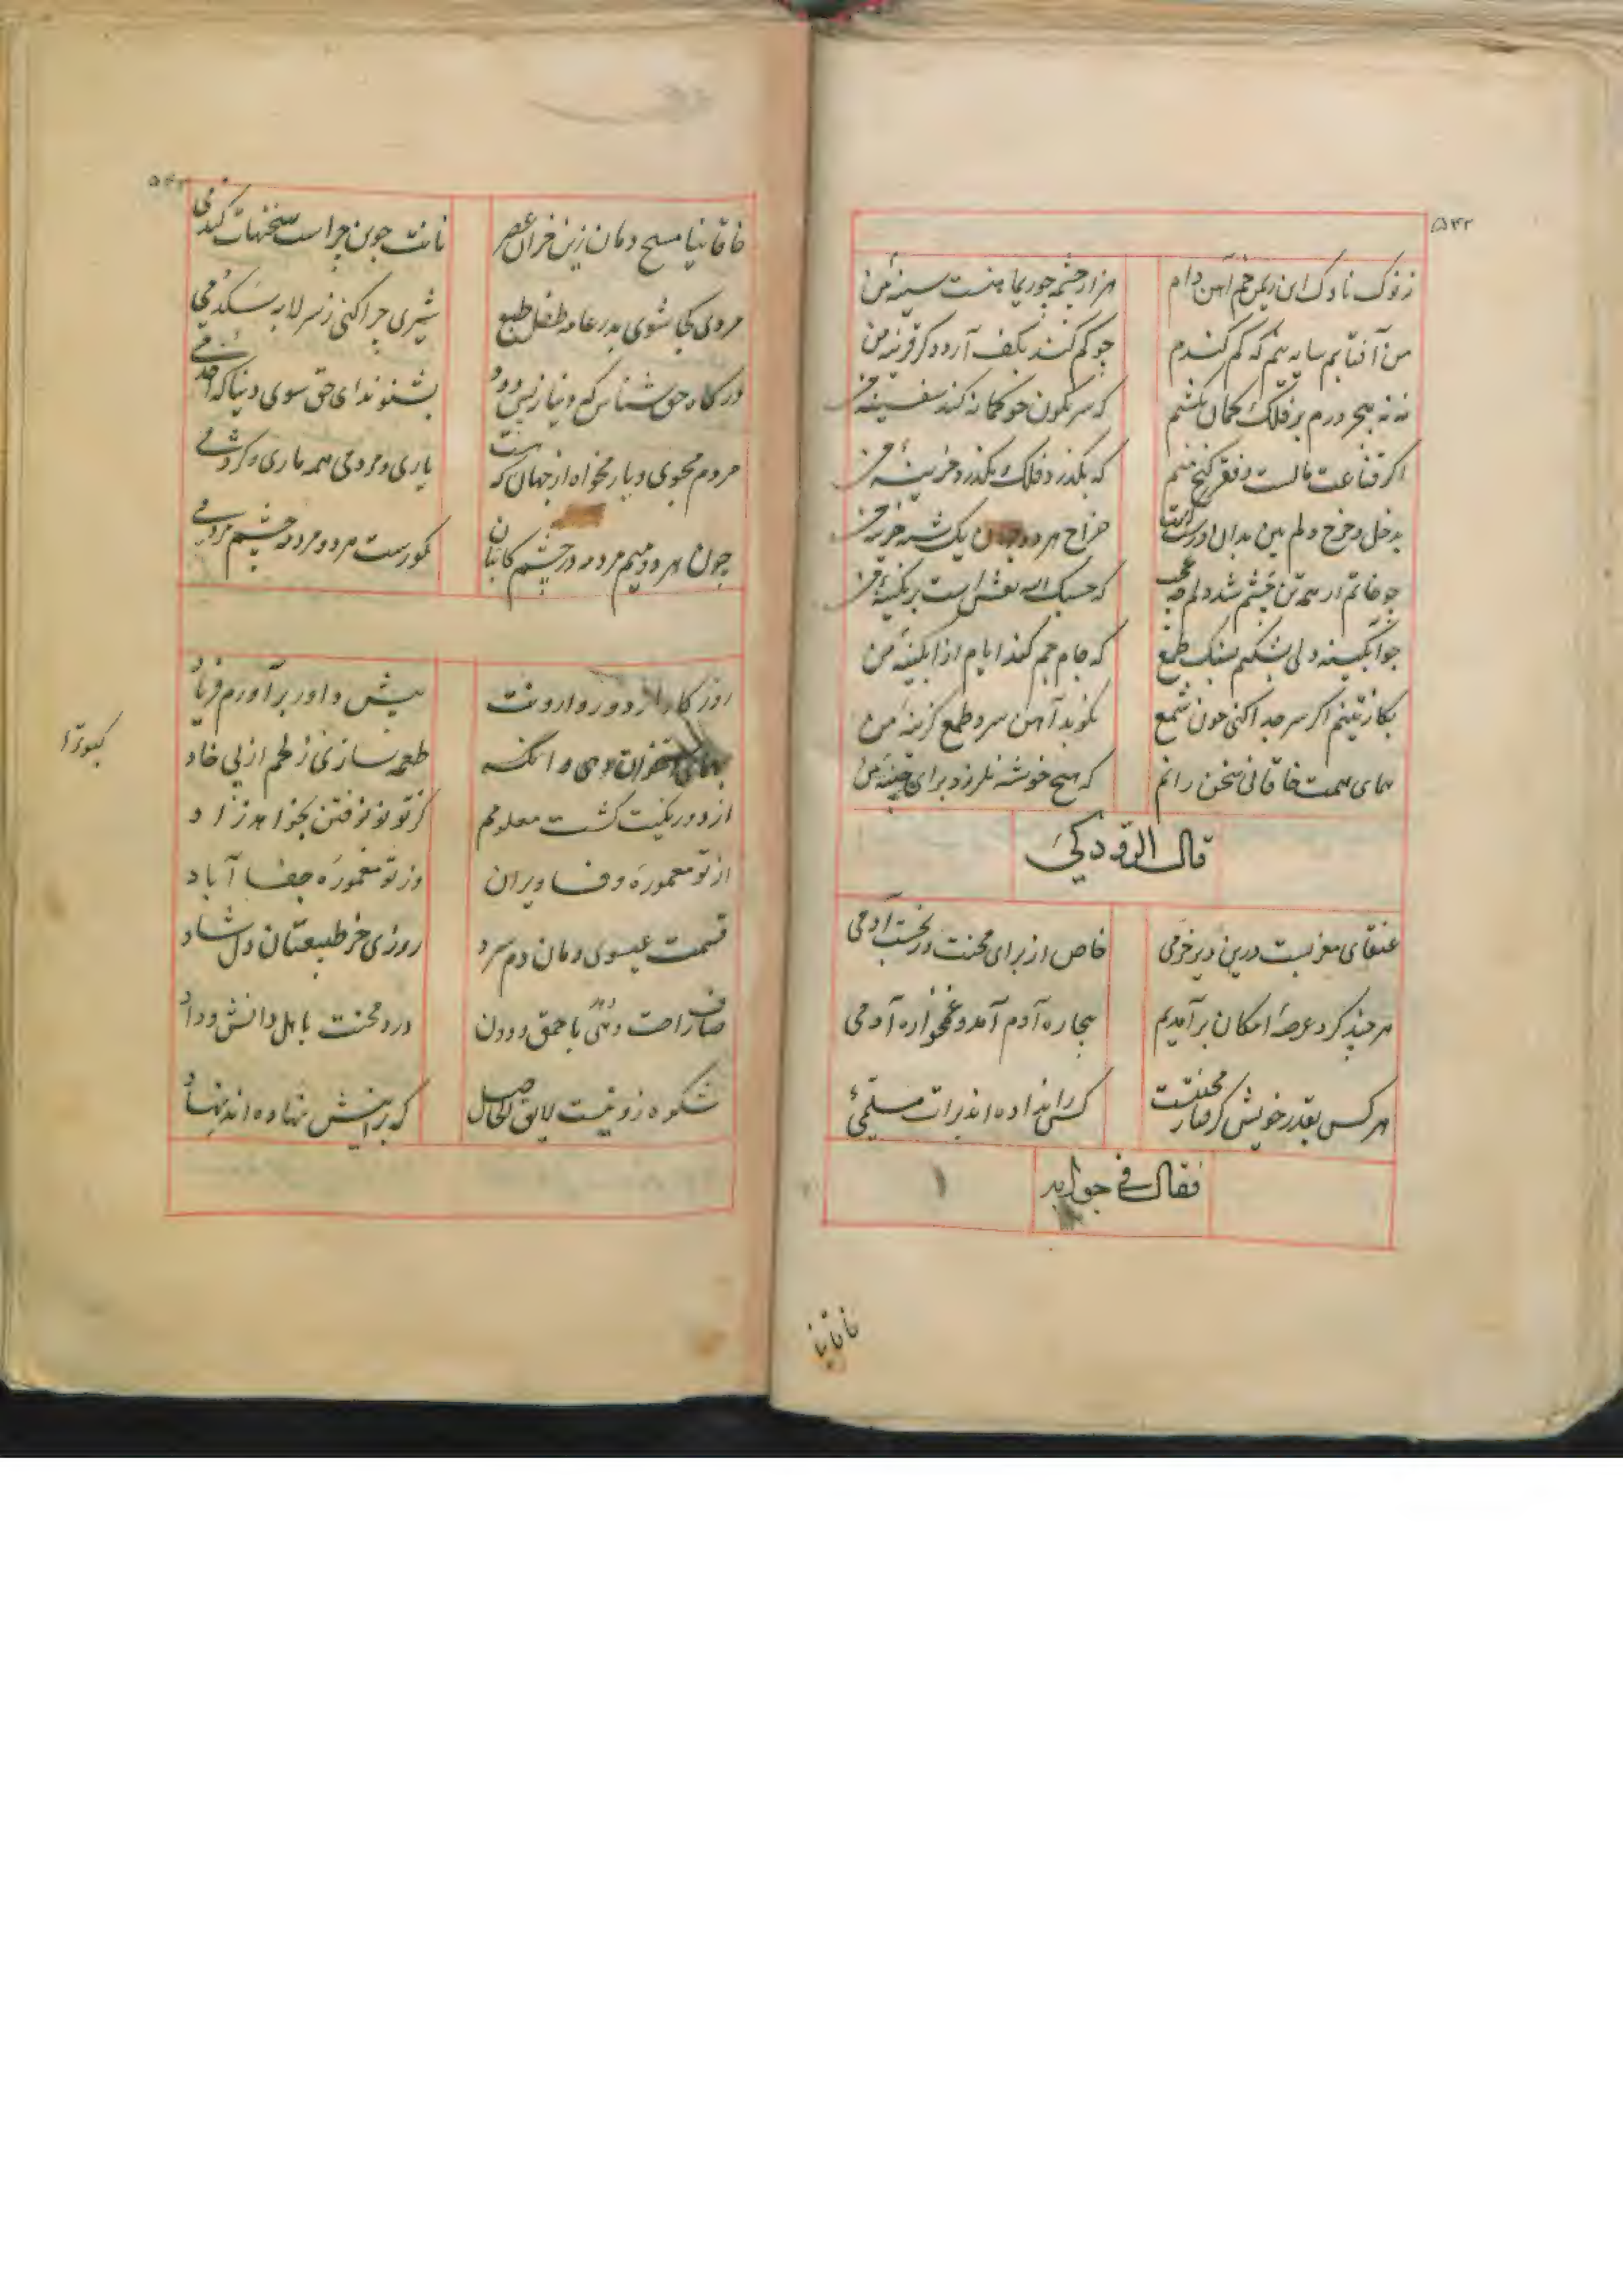 ۵۴۲
ز نوک ناوک این ریمن خم آهن دام هزار چشمه چو ریماهنست سینهٔ من
من آفتابم سایه نیم که کم کندم چو کم کند بکف آرد دگر قرینه من
نه نه بحر درم بر فلک کمان نکشم که سرنگون چو کمانه کند سفینه من
اگر قناعت مالست و فقر گنج منم که بگذرد فلک و نگذرد خزینهٔ من
بدخل و خرج دلم بین بدان درستی است خراج هر دو جهان یک شبه هزینه من
چو خاتم ار همه تن چشم شد دلم چه عجب که حسبک الله نقش است بر نگینهٔ من
چو آبگینه دلی بشکنم بسنگ طمع که جام جم کند ایام از آبگینهٔ من
بگاز نیم اگر سر جدا کنی چون شمع نکوبد آهن سرد طمع گزینهٔ من
همای همت خاقانی سخن رانم که هیچ خوشه نلرزد برای چینهٔ من
قال الرودکی
عنقای مغربست درین دیر خرمی خاص از برای محنت و رنجست آدمی
هر چند گرد عرصهٔ امکان برآمدیم بیچاره آدم آمد و غمخواره آدمی
هر کس بقدر خویش گرفتار محنتست کس را نداده اند برات مسلمی
فقال فی جوابه
خاقانیا
خاقانیا مسیح دمان زین خران عصر نانت جوین چراست سخنهات گندمی
مردی کجا شوی بدر عامه طفل طبع شیری چرا کنی ز سر لابه سگ دمی
درگاه حق شناس که دنیاز پس دود بشنو ندای حق سوی دنیا که اخدمی
مردم مجوی و یار مخواه از جهان که هست یاری و مردمی همه ماری و کژدمی
چون هر دو میم مردمه در چشم کاتبان کورست هر دو مردمه چشم مردمی
روزگارا ز دور وارونت پیش داور برآورم فریاد
بهمای استخوان دهی وانگه طعمه سازی ز لحم از پی خاد کبوترا
از دورنگیت گشت معلومم کز تو نو نو فتن بخواهد زاد
از تو معموره وفا ویران وز تو معموره جفا آباد
قسمت عیسوی دمان دم سرد روزی خر طبیعتان دل شاد
صاف راحت دهی باحمق و دون درد محنت باهل دانش و داد
شکوه زو نیست لایق الحاصل که برینش نهاده اند نهاد